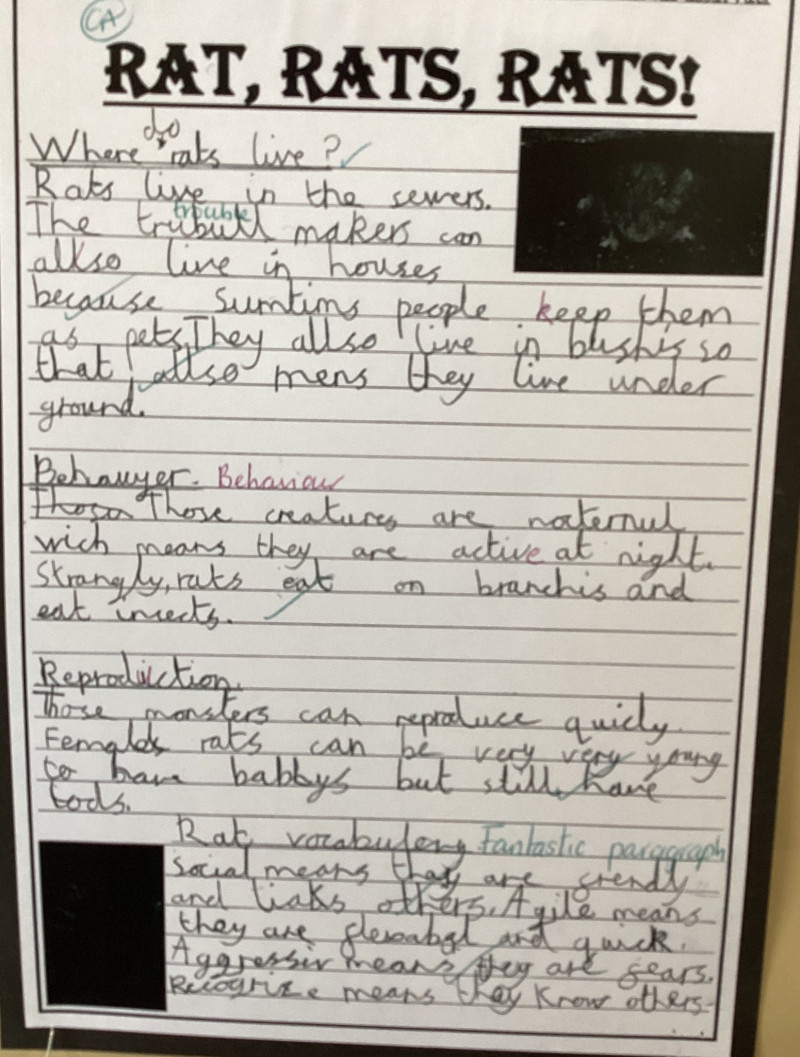 CA
RAT, RATS, RATS!
do
Where rats live?
Rats live in the sewers.
trouble
The trubull makers can
allso live in houses
because sumtims people keep them
as pets. They allso live in bushis so
that allso mens they live under
ground.
Behauyer. Behaviour
Those creatures are nocternul
wich means they are active at night.
Strangly, rats eat on branchis and
eat insects.
Reproduction.
Those monsters can reproduce quicly.
Females rats can be very very young
to have babbys but still have
lods.
Rat vocabulery Fantastic paragraph
Social means they are frendly
and liaks others. Agile means
they are flexabal and quick.
Aggressiv means they are fears.
Recognize means they know others.